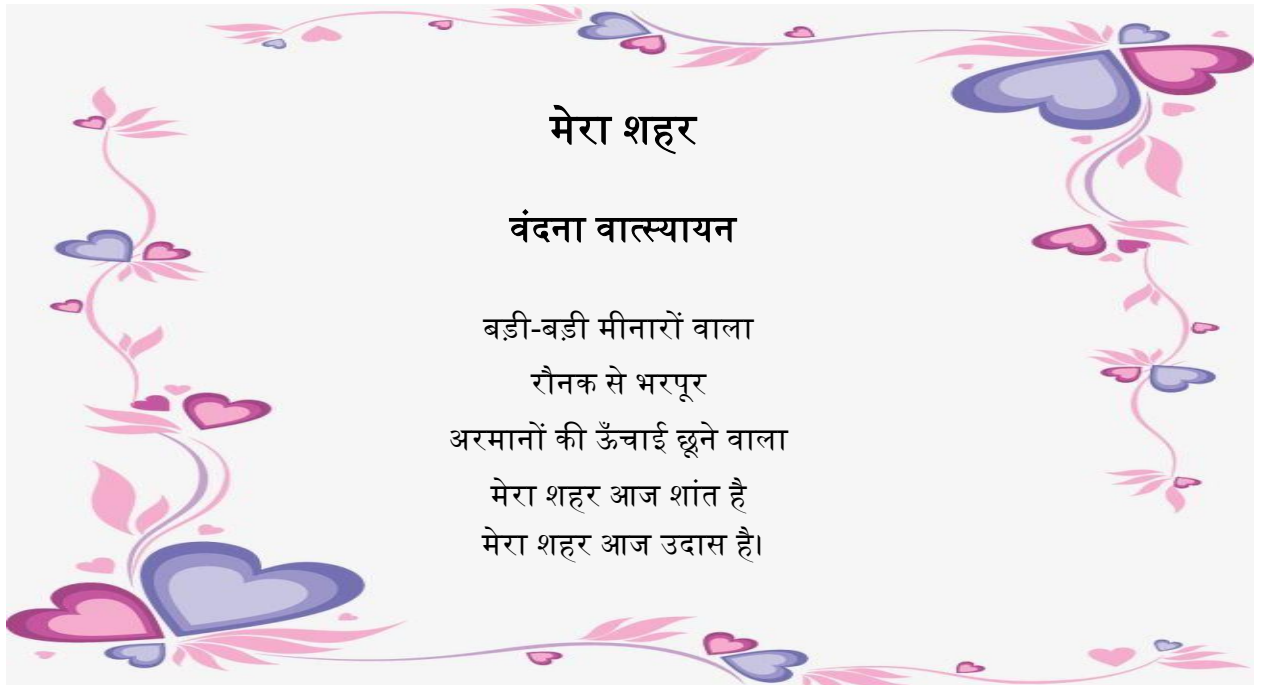 मेरा शहर
वंदना वात्स्यायन
बड़ी-बड़ी मीनारों वाला
रौनक से भरपूर
अरमानों की ऊँचाई छूने वाला
मेरा शहर आज शांत है
मेरा शहर आज उदास है।